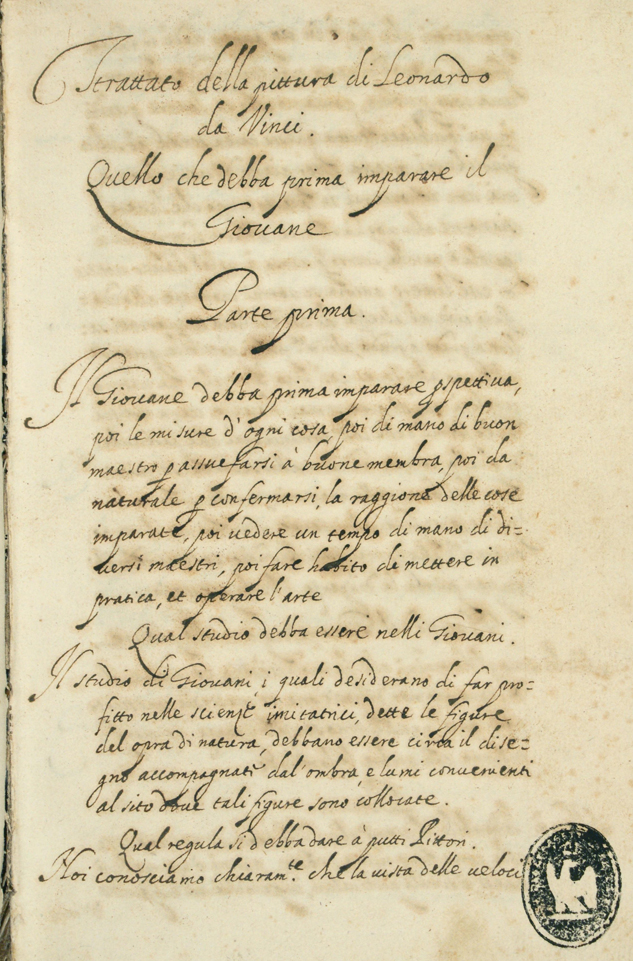 Trattato della pittura di Leonardo
da Vinci.
Quello che debba prima imparare il
Giovane
Parte prima.
Il Giovane debba prima imparare ꝓspettiva,
poi le misure d'ogni cosa, poi di mano di buon
maestro ꝑ assuefarsi à buone membra, poi da
naturale ꝑ confermarsi, la raggione delle cose
imparate, poi vedere un tempo di mano di di=
versi maestri, poi fare habito di mettere in
pratica, et operare l'arte
Qual studio debba essere nelli Giovani.
Il studio di Giovani, i quali desiderano di far pro=
fitto nelle scienze imitatrici, dette le figure
del opra di natura, debbano essere circa il dise=
gno accompagnati dal'ombra, e lumi convenienti
al sito dove tali figure sono collocate.
Qual regula si debba dare à putti Pittori.
Noi conosciamo chiaram.te che la vista delle veloci